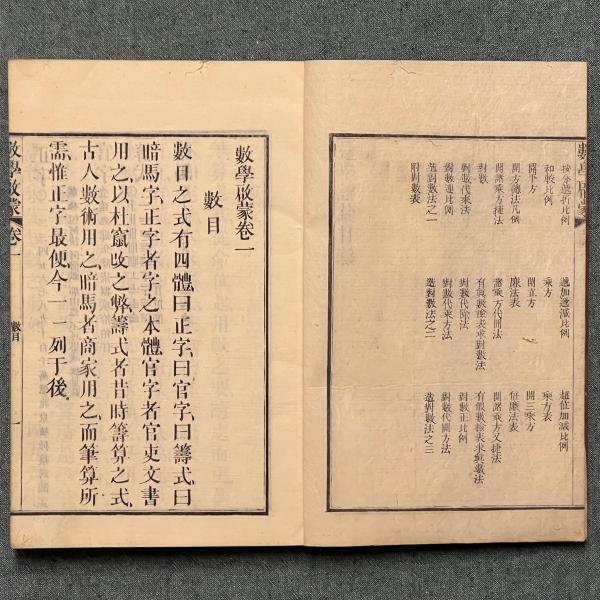 數學啟蒙
按分遞折比例
遞加遞減比例
超位加減比例
和較比例
乘方
乘方表
開平方
開立方
開三乘方
開方總法凡例
廉法表
倍廉法表
開諸乘方捷法
諸乘方代開法
開諸乘方又捷法
對數
有真數檢表求對數法
有假數檢表求真數法
對數代乘法
對數代除法
對數正比例
對數連比例
對數代開方法
造對數法之一
造對數法之二
造對數法之三
附對數表
數學啟蒙卷一
數目
數目之式有四體曰正字曰官字曰籌式曰
暗馬字正字者字之本體官字者官吏文書
用之以杜竄改之弊籌式者昔時籌算之式
古人數術用之暗馬者商家用之而筆算所
需惟正字最便今一一列于後
數學啟蒙
卷一
數目
一